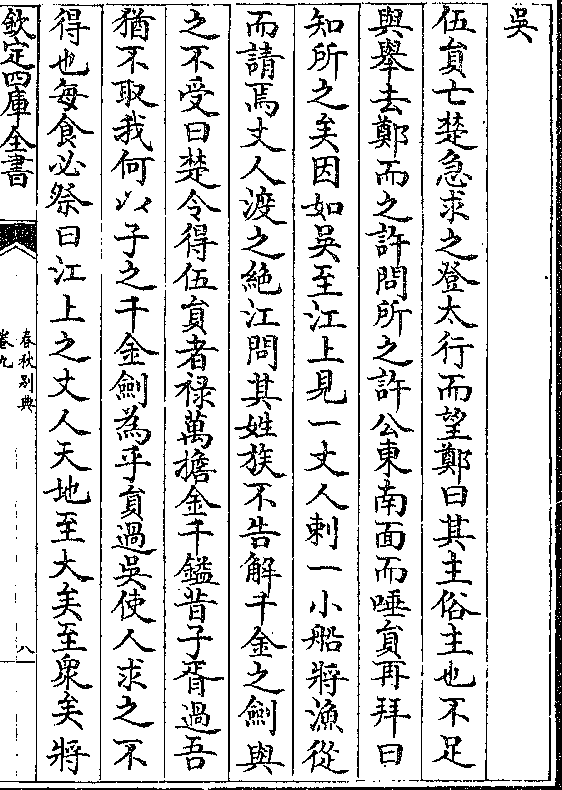 吳
伍員亡楚急求之登太行而望鄭曰其主俗主也不足
與舉去鄭而之許問所之許公東南面而唾員再拜曰
知所之矣因如吳至江上見一丈人刺一小船將漁從
而請焉丈人渡之絶江問其姓族不告解千金之劍與
之不受曰楚令得伍員者祿萬擔金千鎰昔子胥過吾
猶不取我何以子之千金劍為乎員過吳使人求之不
得也每食必祭曰江上之丈人天地至大矣至衆矣將
欽定四庫全書
春秋别典
卷九
八